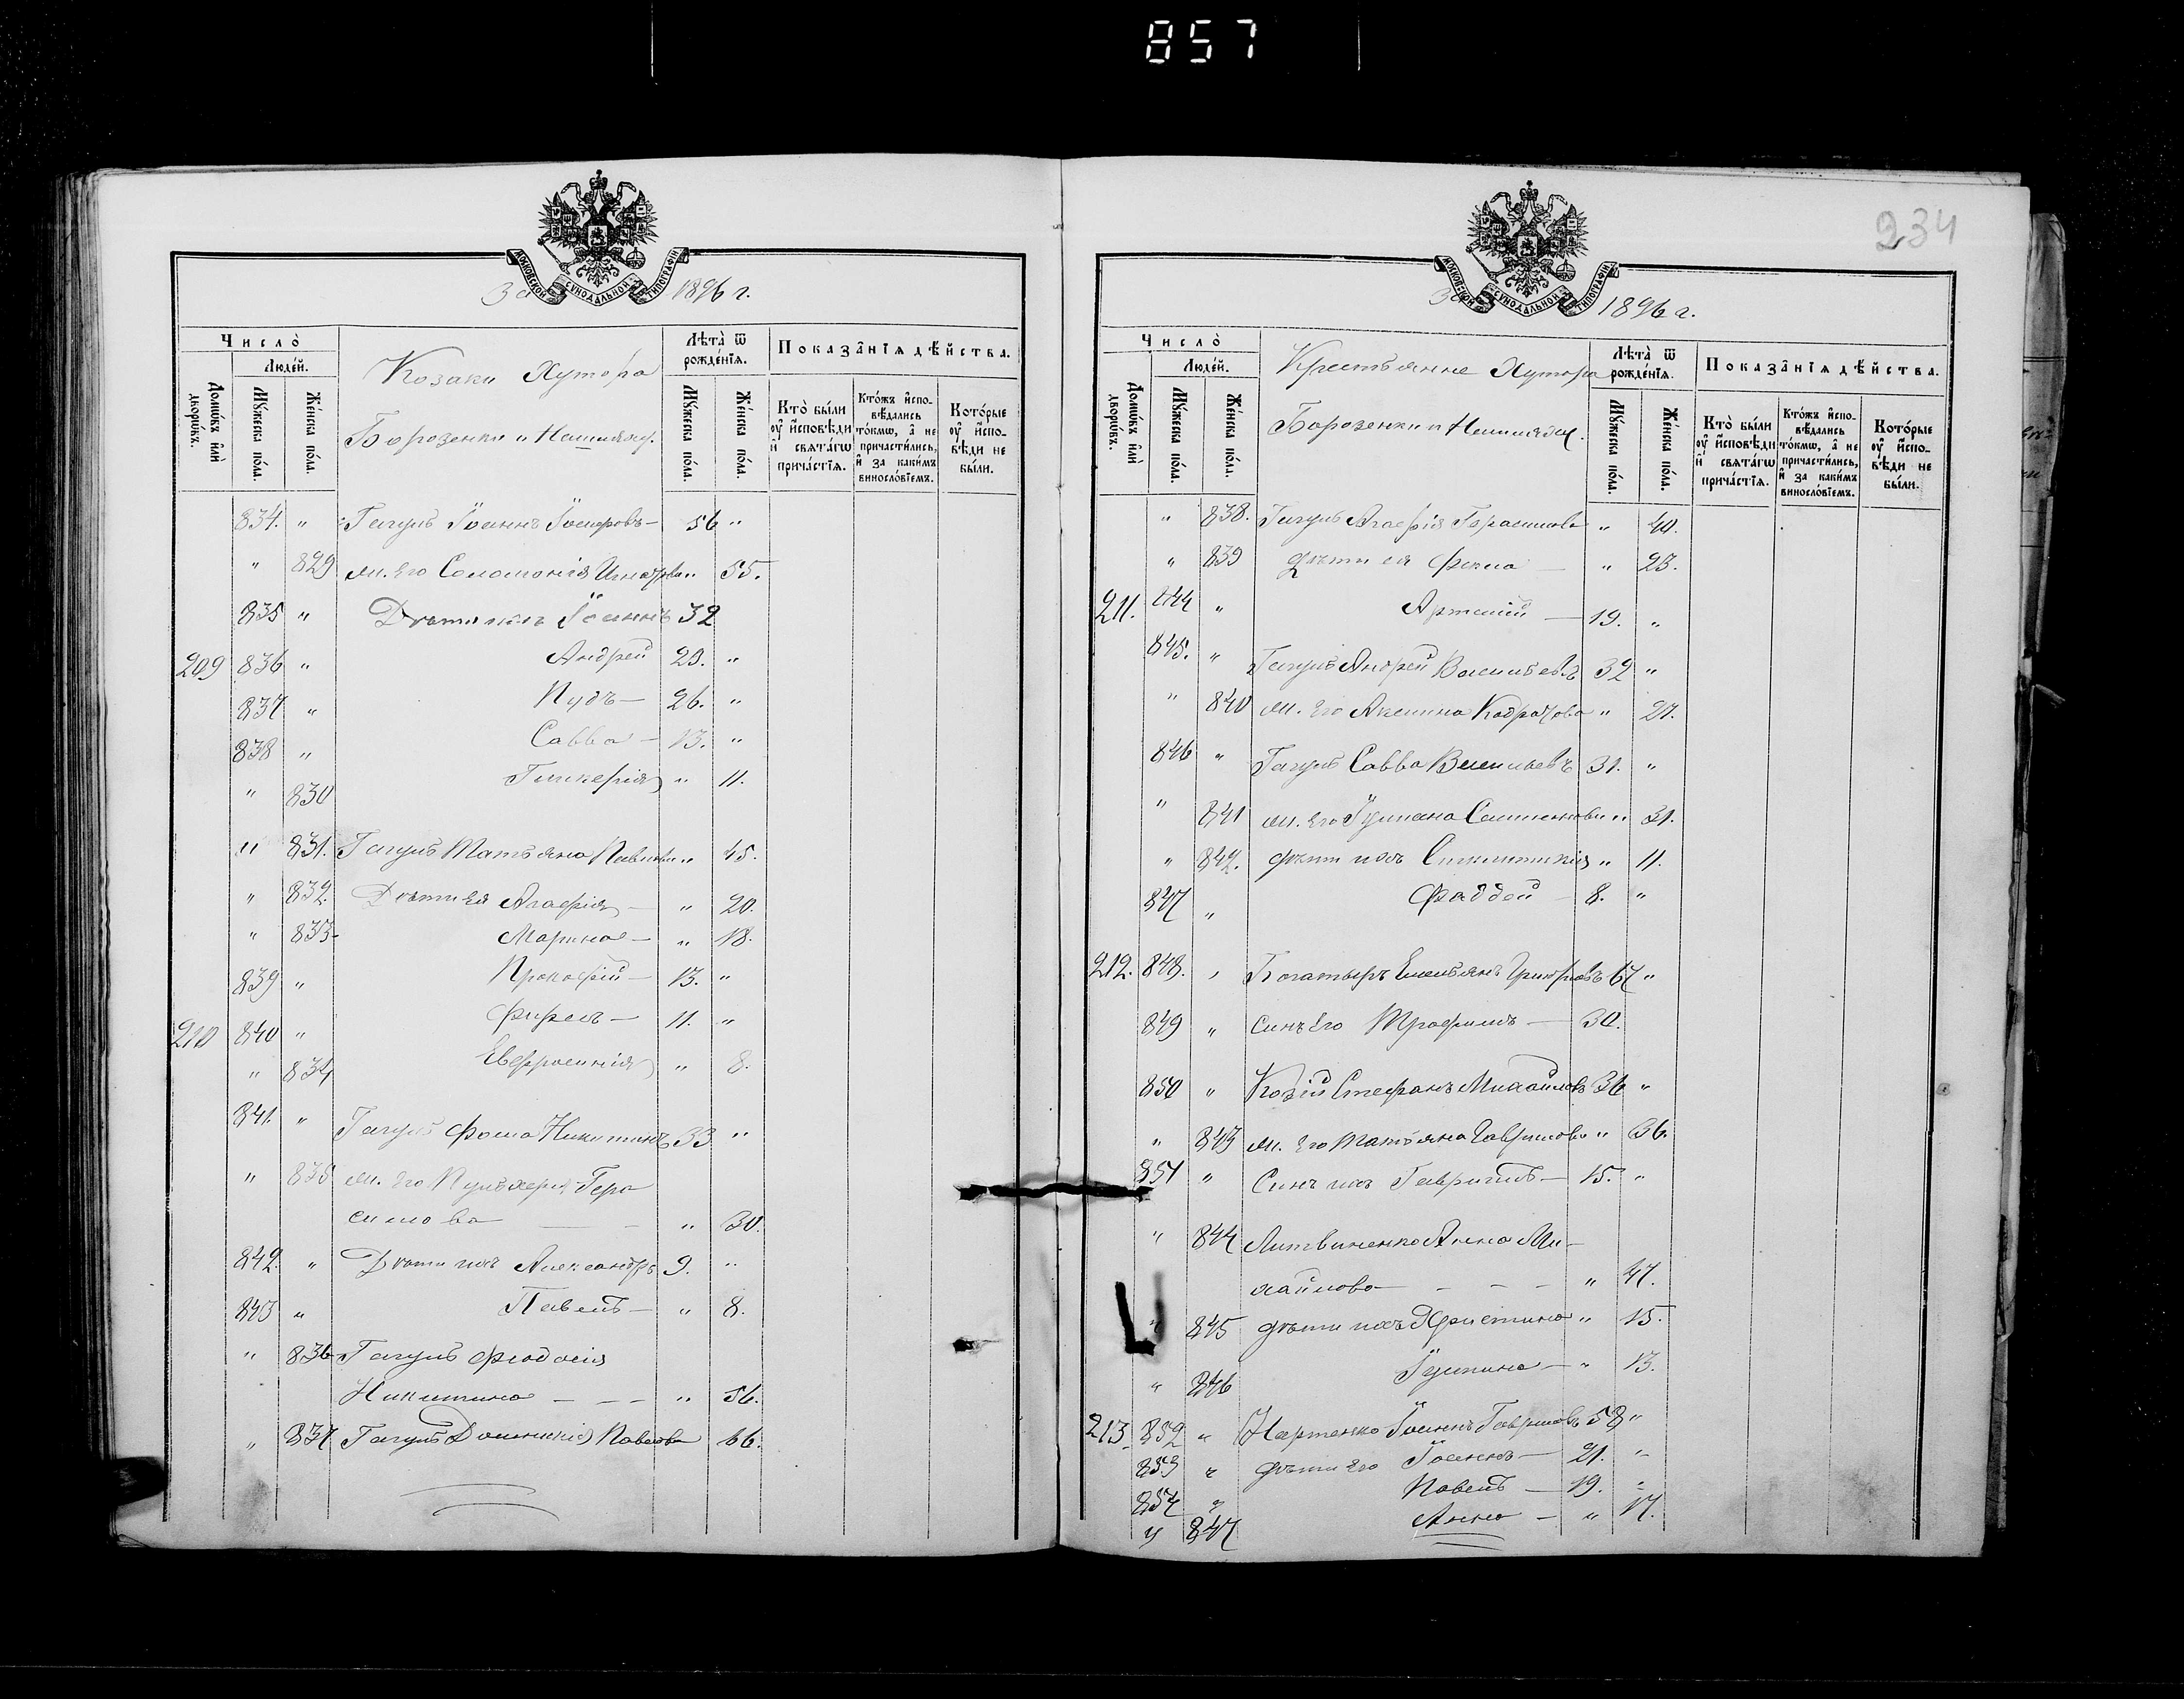 857
234
МОСКОВСКОЙ СѴНОДАЛЬНОЙ ТИПОГРАФІИ
За 1896 г.
Число̀
Людей.
Домѡ́въ и҆лѝ дворѡ́въ.
Мꙋ́жеска по́ла.
Же́нска по́ла.
Козаки Хутора
Борозенки и
Лѣта̀ ѿ рожде́нїѧ.
Мꙋ́жеска по́ла.
Же́нска по́ла.
Показа̂нїѧ дѣ́йства.
Кто̀ бы́ли ᲂу҆ и҆сповѣди и҆ свѧта́гѡ прича́стїѧ.
Кто́жъ и҆спо-вѣдались то́кмѡ, а҆ не причасти́лись, и҆ за каки́мъ винослові́емъ.
Кото́рые ᲂу҆ и҆спо-вѣди не бы́ли.
834. " Гагуль Іоаннъ 56 "
" 829 ж. его Соломонія 55.
835 " Дѣти ихъ Іоаннъ 32
209 836 " Андрей 29. "
837 " Пудъ — 26. "
838 " Савва — 13. "
" 830 Гликерія " 11.
" 831. Гагуль Татьяна Павлова " 45.
" 832. Дѣти ея Агафія — " 20.
" 833 Марина — " 18.
839 " Прокофій — 13. "
210 840 " Фирсъ — 11. "
" 834 Евфросинія " 8.
841. " Гагуль Фома Никитинъ 33 "
" 835 ж. его Пульхерія Гера
симова — — " 30.
842. " Дѣти ихъ Александръ 9. "
843 " Павелъ — " 8.
" 836 Гагуль Феодосія
Никитина — — — " 56.
" 837 Гагуль Домникія Павлова 66.
МОСКОВСКОЙ СѴНОДАЛЬНОЙ ТИПОГРАФІИ
За 1896 г.
Число̀
Людей.
Домѡ́въ и҆лѝ дворѡ́въ.
Мꙋ́жеска по́ла.
Же́нска по́ла.
Крестьянне Хутора
Борозенки и
Лѣта̀ ѿ рожде́нїѧ.
Мꙋ́жеска по́ла.
Же́нска по́ла.
Показа̂нїѧ дѣ́йства.
Кто̀ бы́ли ᲂу҆ и҆сповѣди и҆ свѧта́гѡ прича́стїѧ.
Кто́жъ и҆спо-вѣдались то́кмѡ, а҆ не причасти́лись, и҆ за каки́мъ винослові́емъ.
Кото́рые ᲂу҆ и҆спо-вѣди не бы́ли.
" 838. Гагуль Агафія Герасимова " 40.
" 839 дѣти ея Фекла — " 23.
211. 844 " Артемій — 19. "
845. " Гагуль Андрей Васильевъ 32 "
" 840 ж. его Акелина " 27.
846 " Гагуль Савва Васильевъ 31. "
" 841 ж. его Іуліана " 31.
" 842. дѣти ихъ " 11.
847 " Фаддей — 8. "
212. 848. " Богатырь Емельянъ Григорьевъ 67 "
849 " синъ его Трофимъ — 30.
850 " Козій Стефанъ Михайловъ 36 "
" 843 ж. его Татьяна Гаврилова " 36.
851 " Синъ ихъ Гавриилъ — 15. "
" 844 Литвиненко Анна Ми-
хайлова — — — — " 47.
" 845 дѣти ихъ Христина " 15.
" 846 Іулиана — " 13.
213. 852 " Іоаннъ Гавриловъ 58 "
853 " дѣти его Іоаннъ — 21. "
854 " Павелъ — 19. "
" 847 Анна — " 17.